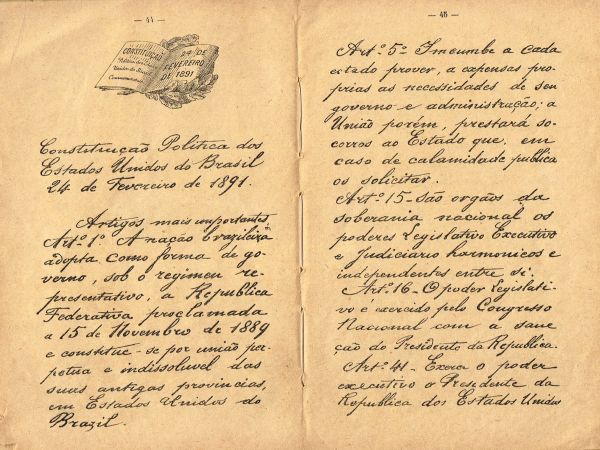 — 44 —
CONSTITUIÇÃO
24 DE
FEVEREIRO
DE 1891
Constituição Politica dos
Estados Unidos do Brasil
24 de Fevereiro de 1891.
Artigos mais importantes
Art.º 1º A nação brazileira
adopta como forma de go-
verno, sob o regimen re-
presentativo, a Republica
Federativa proclamada
a 15 de Novembro de 1889
e constitue-se por união per-
petua e indissoluvel das
suas antigas provincias,
em Estados Unidos do
Brazil.
— 45 —
Art.º 5º Imcumbe a cada
estado prover, a expensas pro-
prias as necessidades de seu
governo e administração; a
União porém, prestará so-
corros ao Estado que, em
caso de calamidade publica
os solicitar.
Art.º 15 - São orgãos da
soberania nacional os
poderes Legislativo Executivo
e Judiciario harmonicos e
independentes entre si.
Art.º 16 - O poder Legislati-
vo e exercido pelo Congresso
Nacional com a sanc-
ção do Presidente da Republica.
Art.º 41 - Exerce o poder
executivo o Presidente da
Republica dos Estados Unidos